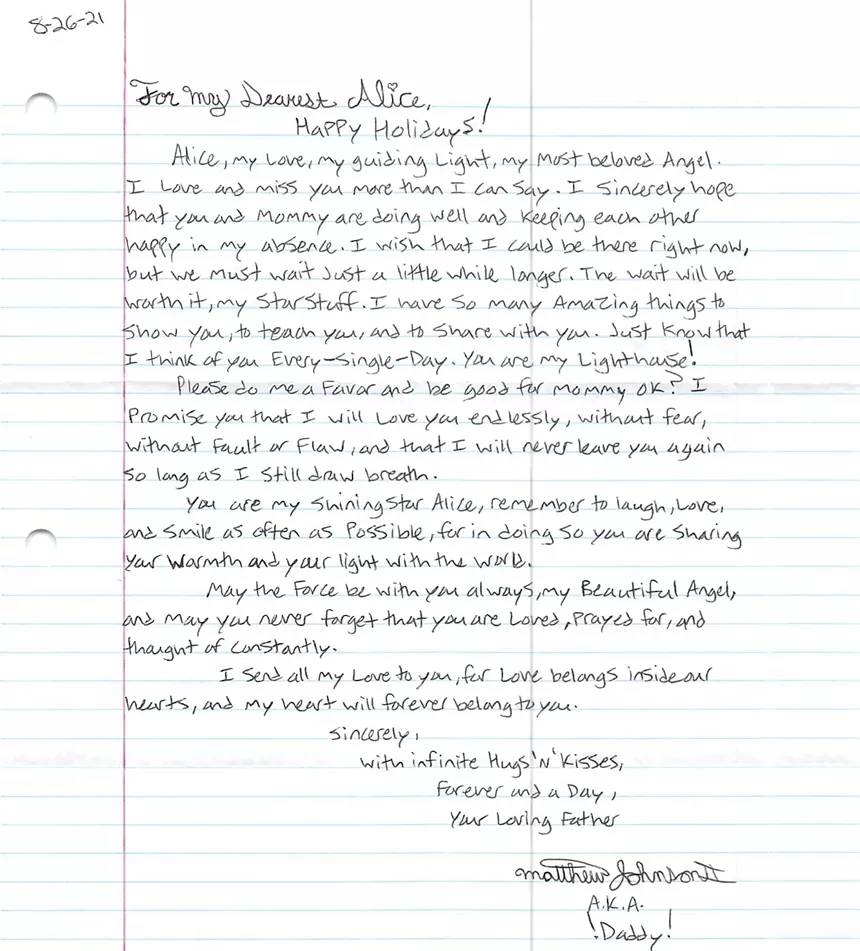 8-26-21
For My Dearest Alice,
Happy Holidays!
Alice, my Love, my guiding Light, my most beloved Angel.
I Love and miss you more than I can say. I sincerely hope
that you and Mommy are doing well and keeping each other
happy in my absence. I wish that I could be there right now,
but we must wait just a little while longer. The wait will be
worth it, my Star Stuff. I have so many Amazing things to
show you, to teach you, and to share with you. Just know that
I think of you Every-Single-Day. You are my Lighthouse!
Please do me a Favor and be good for Mommy OK? I
Promise you that I will Love you endlessly, without fear,
without fault or Flaw, and that I will never leave you again
so long as I still draw breath.
You are my shining star Alice, remember to laugh, Love,
and smile as often as Possible, for in doing so you are sharing
your warmth and your light with the world.
May the Force be with you always, my Beautiful Angel,
and may you never forget that you are Loved, Prayed for, and
thought of constantly.
I send all my Love to you, for Love belongs inside our
hearts, and my heart will forever belong to you.
Sincerely,
with infinite Hugs 'N' Kisses,
Forever and a Day,
Your Loving Father
Matthew Johnson II
A.K.A.
!Daddy!